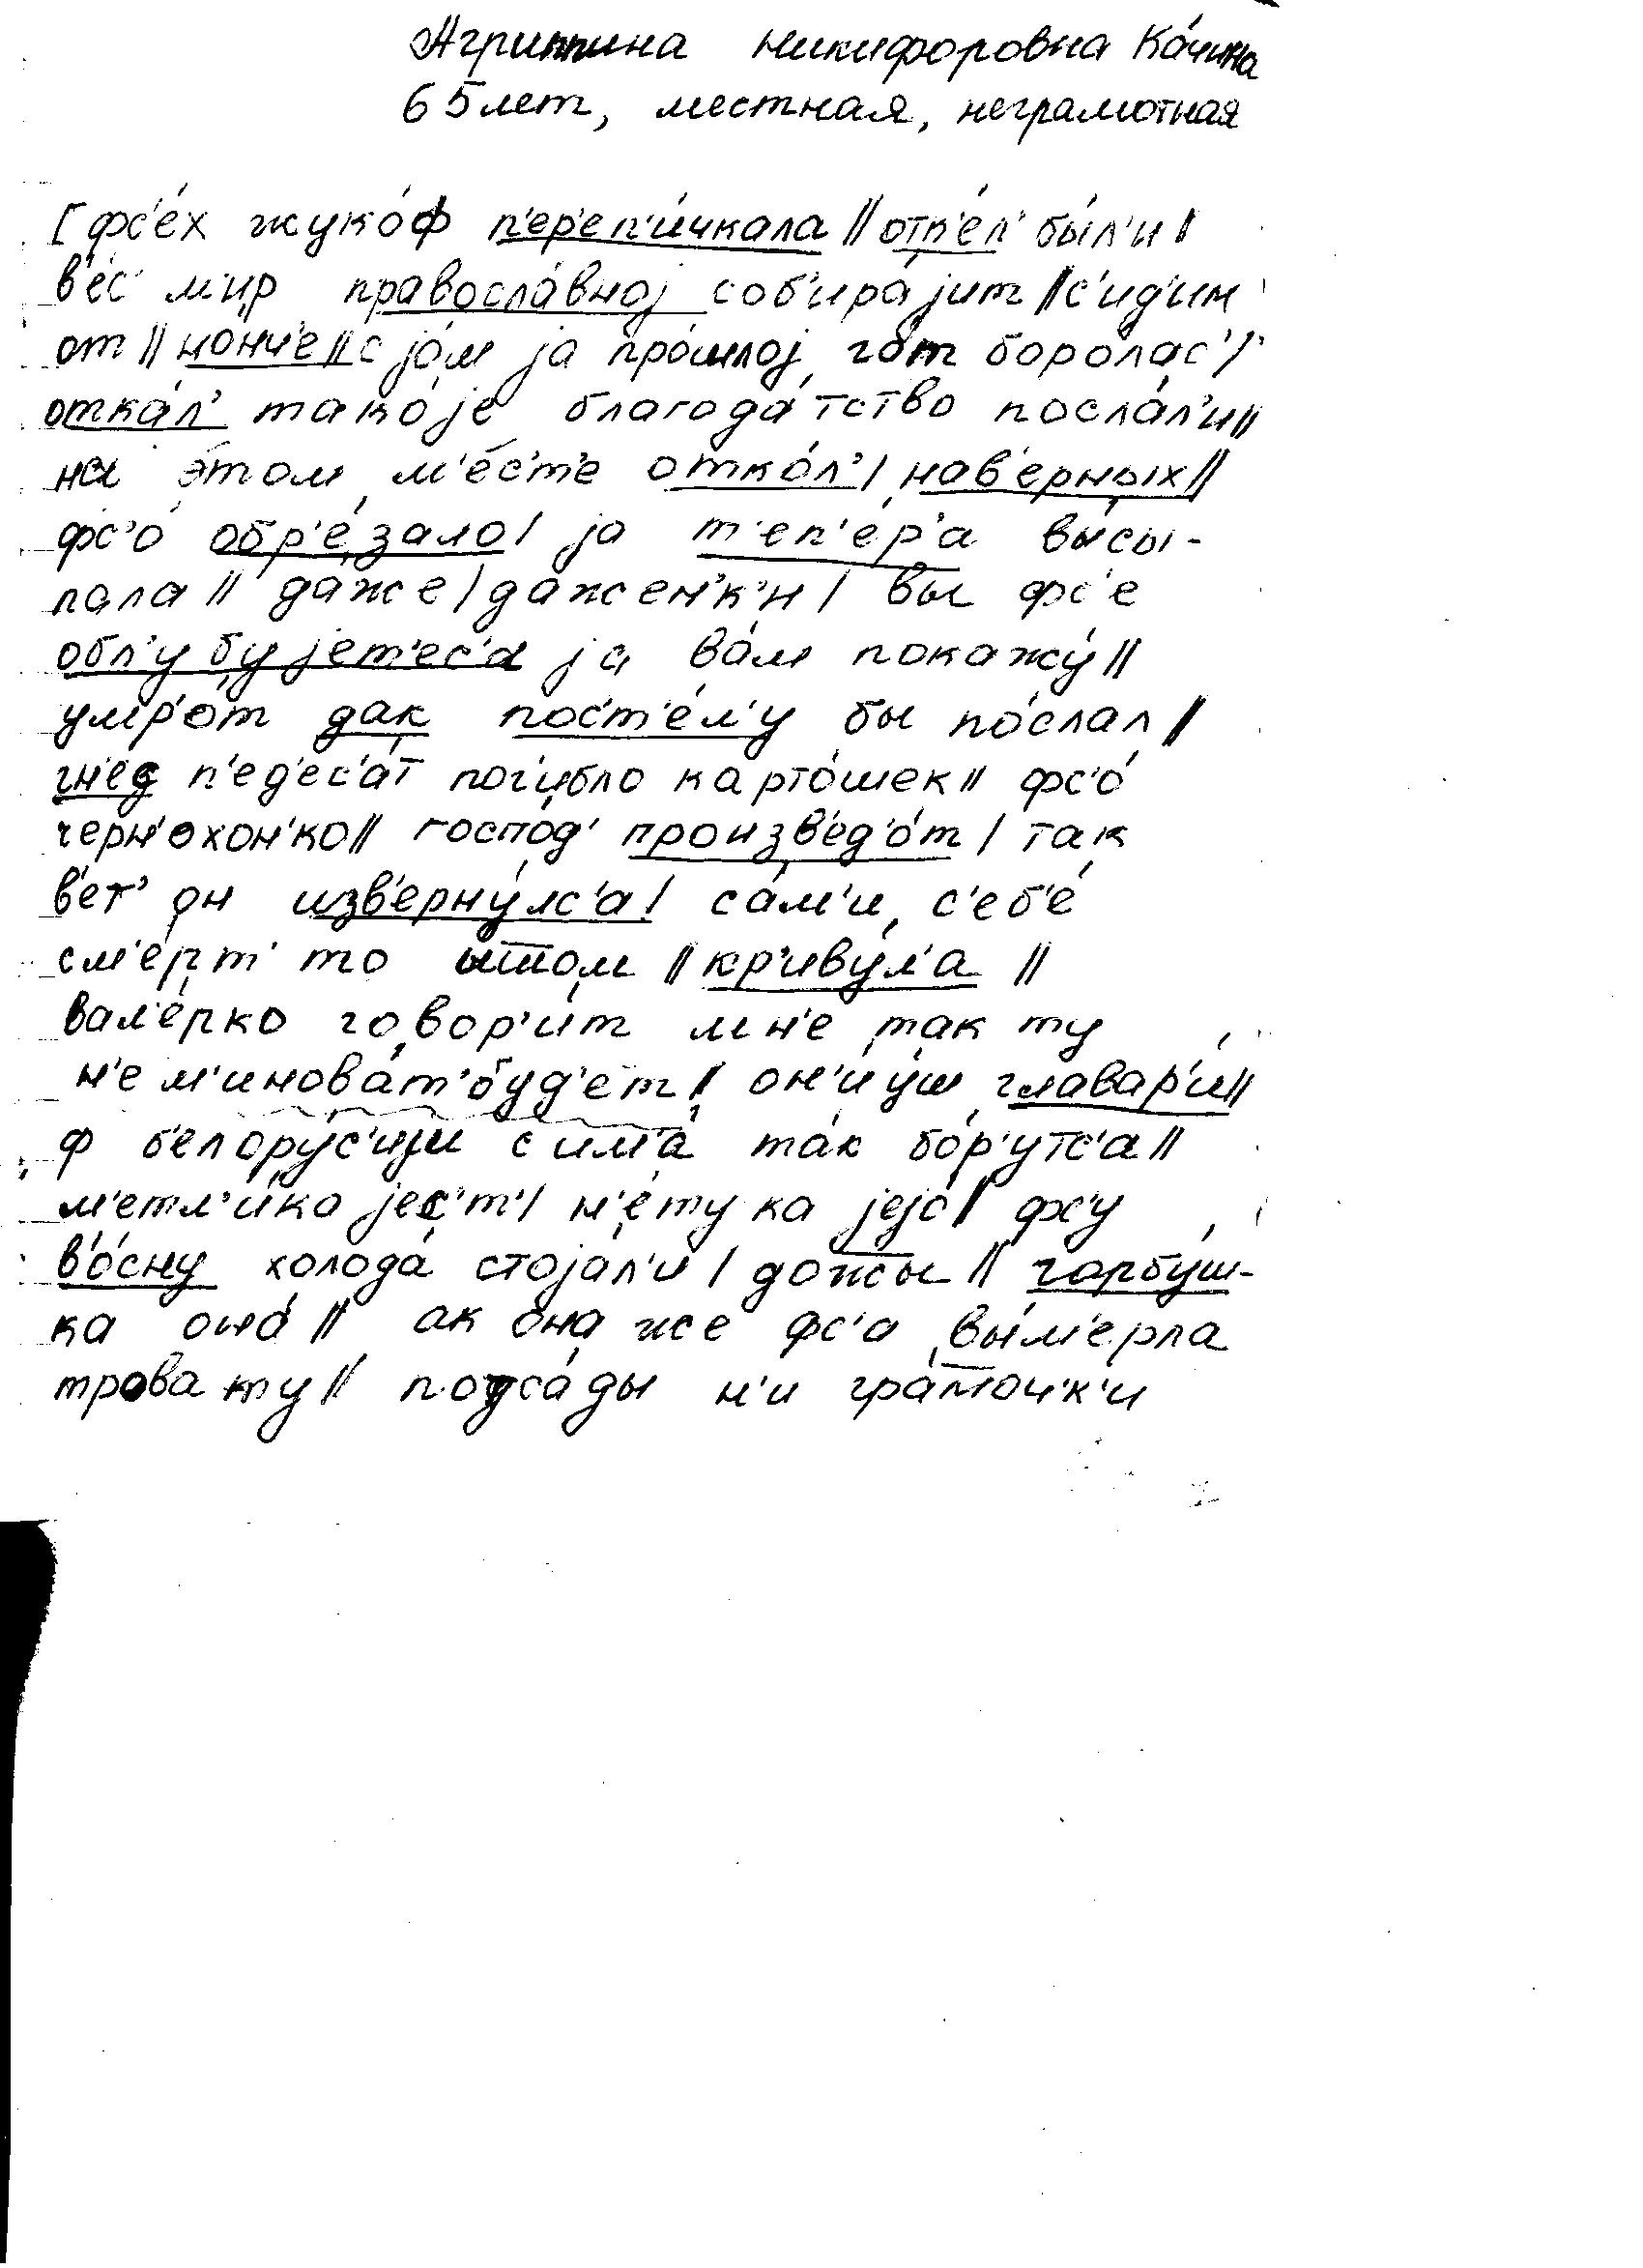 Агриппина Никифоровна Ка́чина
65 лет, местная, неграмотная
[фс'е́х жуко́ф п'ер'еп'и́чкала || отп'е́л' бы́л'и |
в'ес' м'ир правосла́вној соб'ира́јит || с'ид'и́м
от || но́нч'е || с јо́м ја про́шлој го́т боро́лас' |
отка́л' тако́је благода́тство посла́л'и ||
на э́том м'е́с'т'е отко́л' | нав'е́рных ||
фс'о́ обр'е́зало | ја т'еп'е́р'а вы́сы-
пала || да́же | да́жен'к'и | вы фс'е
обл'убу́јет'ес'а ја ва́м покажу́ ||
умр'о́т дак пос'т'е́л'у бы по́слал ||
гн'ед п'ед'ес'а́т поги́бло карто́шек || фс'о́
черн'охон'ко || госпо́д' произв'ед'о́т | так
в'ет' он изв'ерну́лс'а | са́м'и с'еб'е́
см'е́рт' то ы́шом || кр'иву́л'а ||
вал'е́рко говор'и́т мн'е так ту
н'е м'инова́т' буд'ет || он'и́ уш главар'и́ ||
ф б'елору́с'ији с има́ та́к бо́р'утс'а ||
м'етл'и́ка јес'т' | н'е́ту ка јејо́ || фс'у
в'о́сну холода́ стоја́л'и | дожжы || горбу́ш-
ка она́ || ак она́ же фс'а вы́м'ерла
трова ту || потса́ды н'и гра́моч'к'и